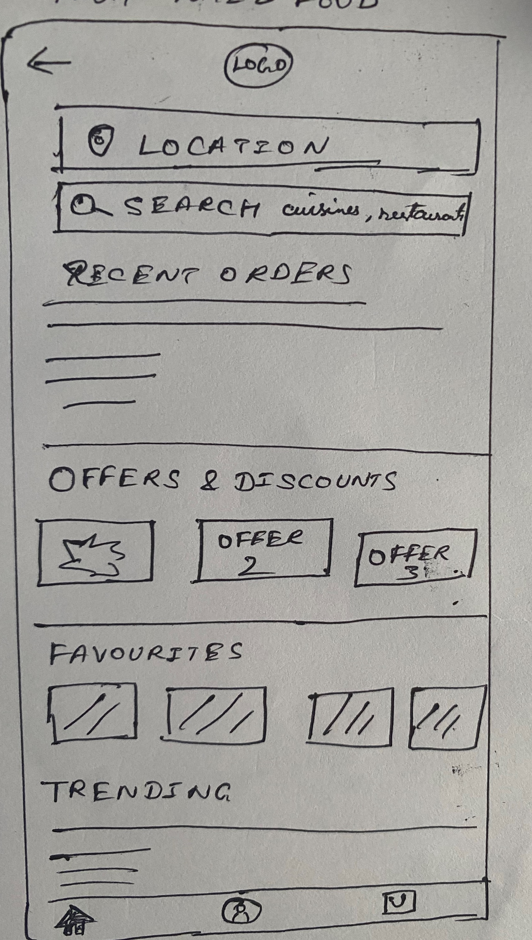 FOOD
LOGO
LOCATION
SEARCH cuisines, restaurants
RECENT ORDERS
OFFERS & DISCOUNTS
OFFER
2
OFFER
3
FAVOURITES
TRENDING